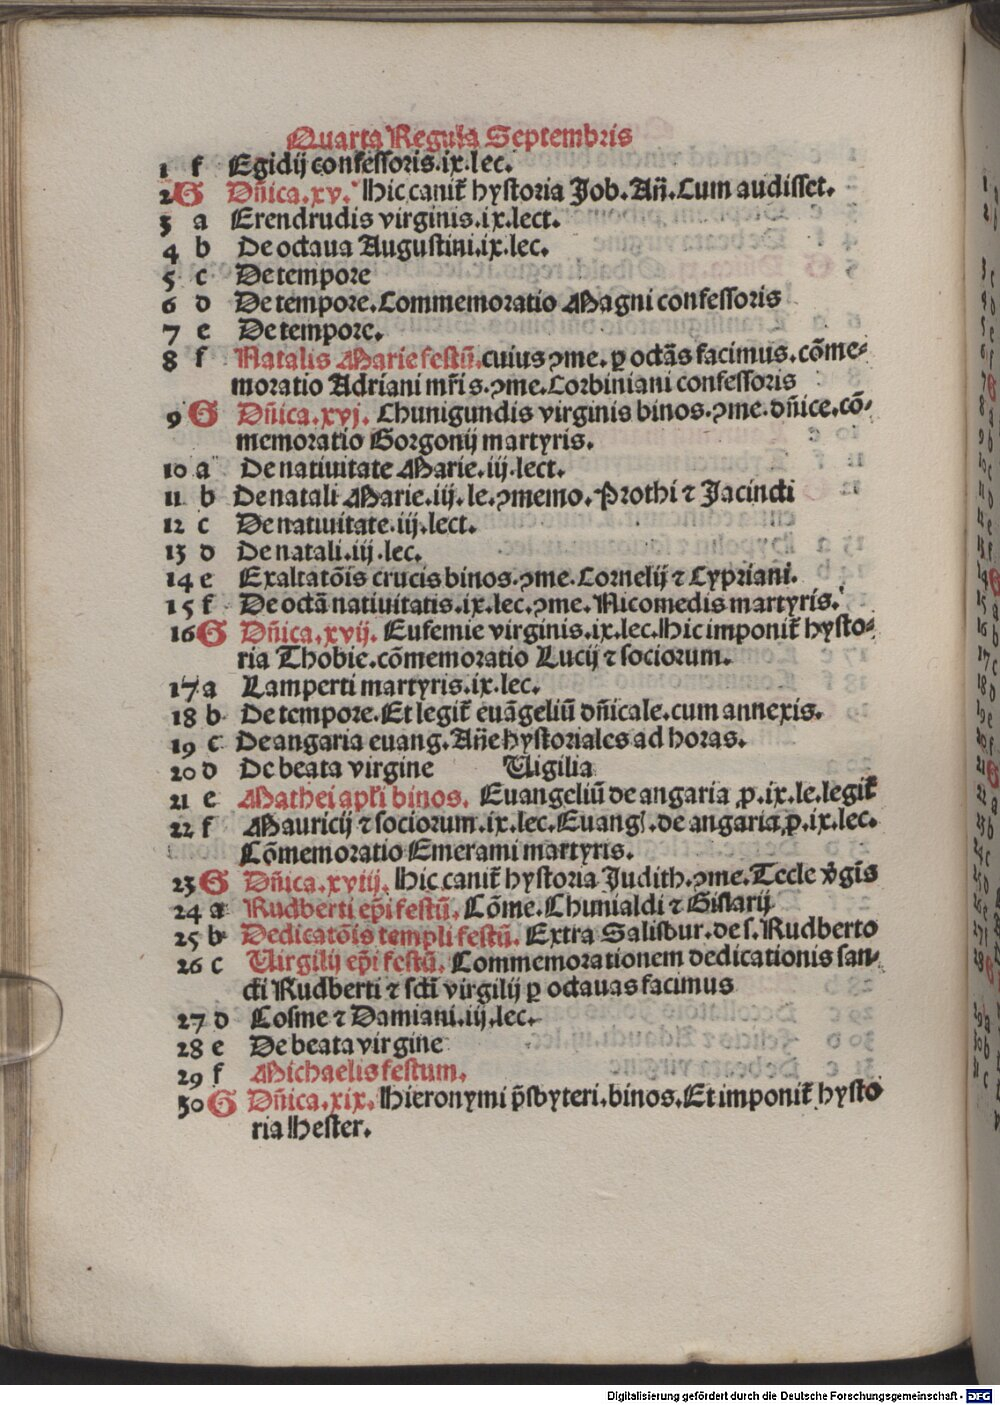 Quarta Regula Septembris
1 f Egidij confessoris.ix.lec.
2 G Dñica.xv. Hic canit᷑ hystoria Job. Añ. Cum audisset.
3 a Erendrudis virginis.ix.lect.
4 b De octaua Augustini.ix.lec.
5 c De tempore
6 d De tempore. Commemoratio Magni confessoris
7 e De tempore.
8 f Natalis Marie festū. cuius ꝯme. ꝑ octās facimus. cōme⸗
moratio Adriani mr̄is. ꝯme. Corbiniani confessoris
9 G Dñica.xvj. Chunigundis virginis binos. ꝯme. dñice. cō⸗
memoratio Gorgonij martyris.
10 a De natiuitate Marie.iij.lect.
11 b De natali Marie.iij.le. ꝯmemo. Prothi ⁊ Jacincti
12 c De natiuitate.iij.lect.
13 d De natali.iij.lec.
14 e Exaltatōis crucis binos. ꝯme. Cornelij ⁊ Cypriani.
15 f De octā natiuitatis.ix.lec. ꝯme. Nicomedis martyris.
16 G Dñica.xvij. Eufemie virginis.ix.lec. Hic imponit᷑ hysto⸗
ria Thobie. cōmemoratio Lucij ⁊ sociorum.
17 a Lamperti martyris.ix.lec.
18 b De tempore. Et legit᷑ euāgeliū dñicale. cum annexis.
19 c De angaria euang. Añe hystoriales ad horas.
20 d De beata virgine Uigilia
21 e Mathei apl̄i binos. Euangeliū de angaria ꝓ.ix.le.legit᷑
22 f Mauricij ⁊ sociorum.ix.lec. Euangl. de angaria ꝓ.ix.lec.
Cōmemoratio Emerami martyris.
23 G Dñica.xviij. Hic canit᷑ hystoria Judith. ꝯme. Tecle v̄gīs
24 a Rudberti ep̄i festū. Cōme. Chunialdi ⁊ Gislarij
25 b Dedicatōis templi festū. Extra Salisbur. de s. Rudberto
26 c Uirgilij ep̄i festū. Commemorationem dedicationis san⸗
cti Rudberti ⁊ sct̄i virgilij ꝑ octauas facimus
27 d Cosme ⁊ Damiani.iij.lec.
28 e De beata virgine
29 f Michaelis festum.
30 G Dñica.xix. Hieronymi p̄sbyteri. binos. Et imponit᷑ hysto
ria Hester.
Digitalisierung gefördert durch die Deutsche Forschungsgemeinschaft - DFG